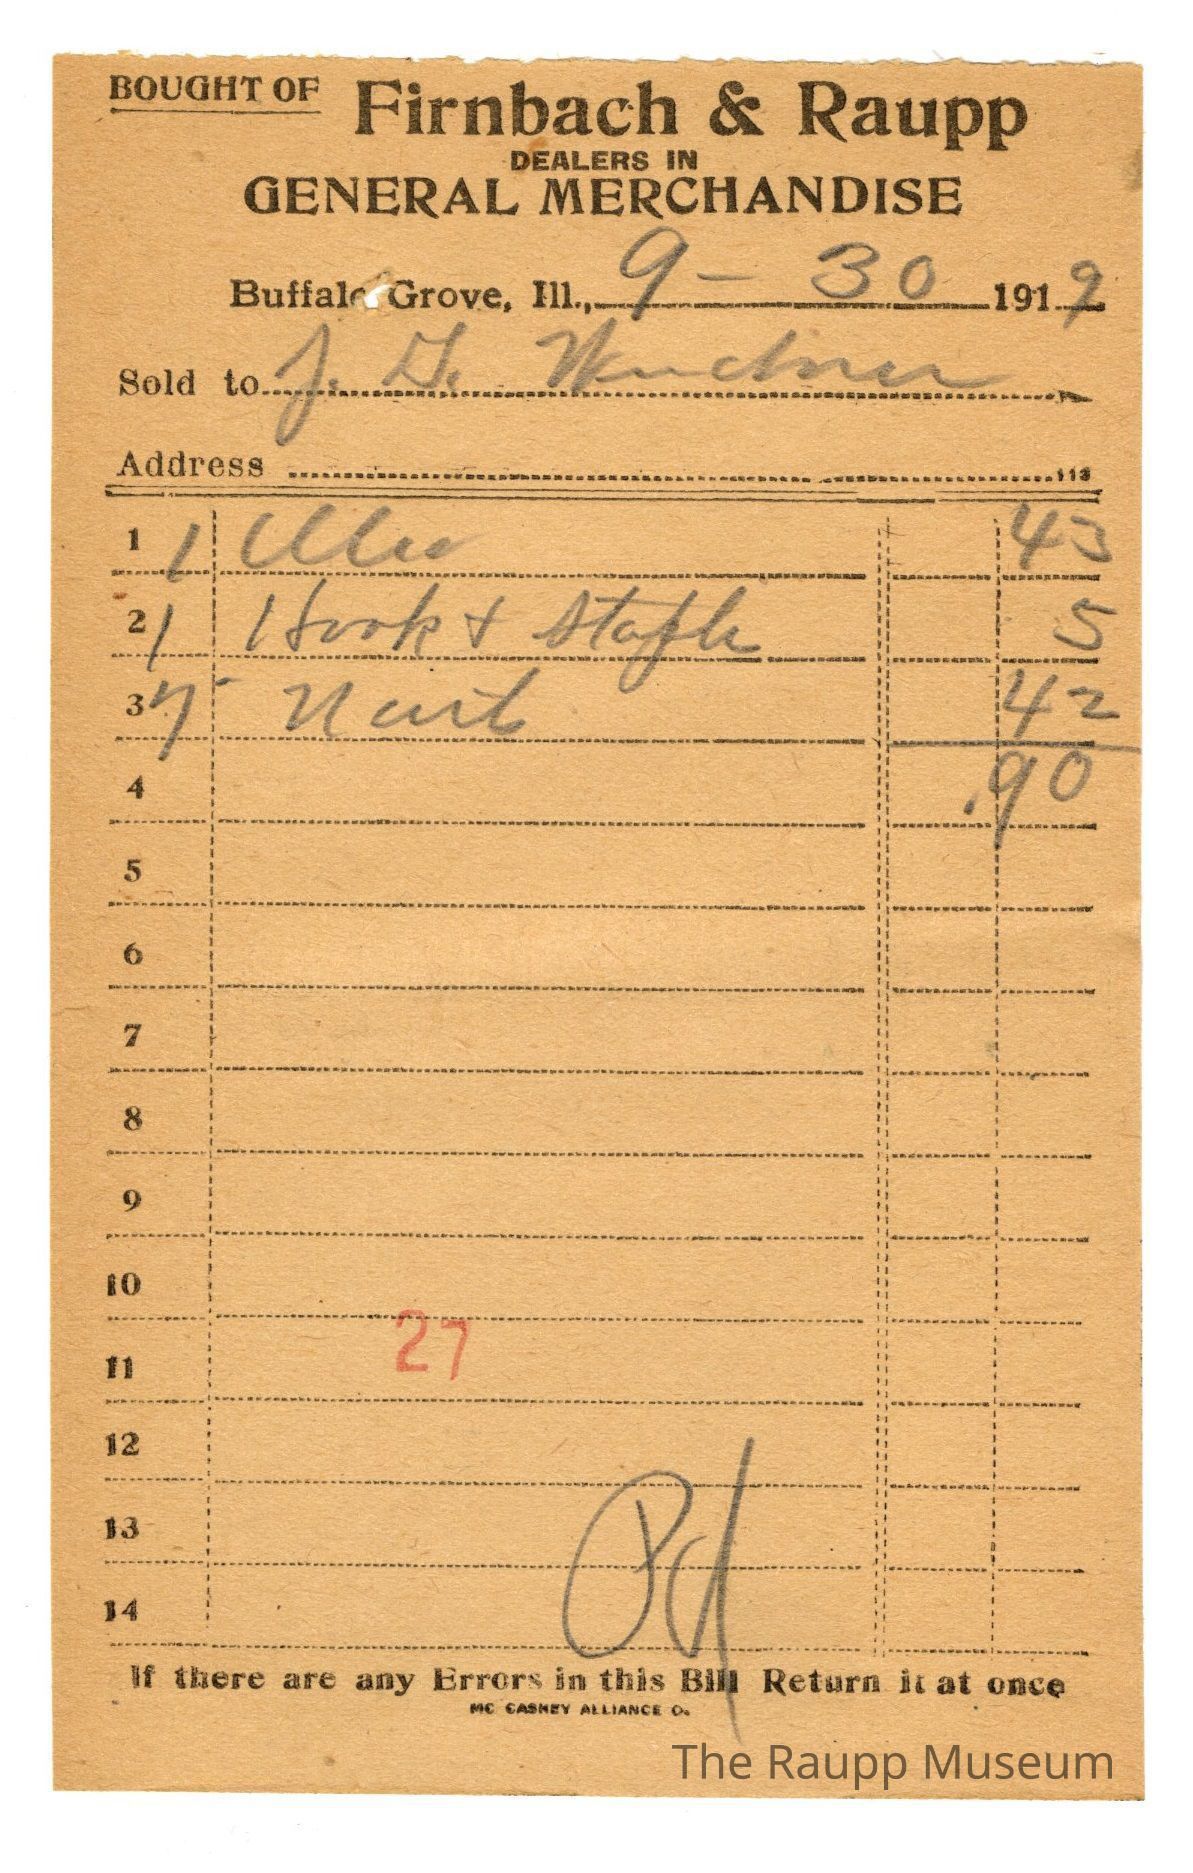 BOUGHT OF Firnbach & Raupp
DEALERS IN
GENERAL MERCHANDISE
Buffalo Grove, Ill., 9 - 30 1919
Sold to J. G.
Address 113
1 1 43
2 1 Hook & Staple 5
3 7 Nails 42
4 .90
5
6
7
8
9
10
27
11
12
13
Pd
14
If there are any Errors in this Bill Return it at once
MC CASKEY ALLIANCE O.
The Raupp Museum